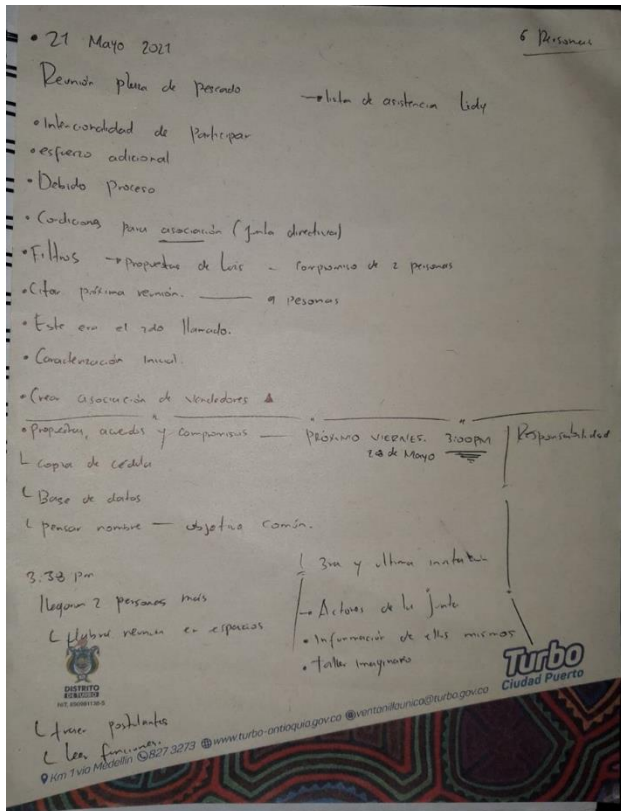 • 21 Mayo 2021
6 Personas
Reunión plaza de pescado → lista de asistencia Lidy
• Intencionalidad de Participar
• esfuerzo adicional
• Debido Proceso
• Condiciones para asociación (junta directiva)
• Filtros → propuestas de Luis - Compromiso de 2 personas
• Citar próxima reunión. — 9 Pesonas
• Este era el 2do llamado.
• Caracterización Inicial.
• Crear asociación de vendedores
• Propuestas, acuerdos y compromisos — PRÓXIMO VIERNES. 3:00PM
28 de Mayo
Responsabilidad
L copia de cédula
L Base de datos
L pensar nombre — objetivo común.
3:38 pm
llegaron 2 personas más
L reunión en espacios
3ra y ultima
→ Actores de la junta
• Información de ellos mismos
• taller imaginario
DISTRITO
DE TURBO
NIT. 890981138-5
Turbo
Ciudad Puerto
L traer postulantes
L leer funciones.
Km 1 vía Medellín 827 3273 www.turbo-antioquia.gov.co ventanillaunica@turbo.gov.co